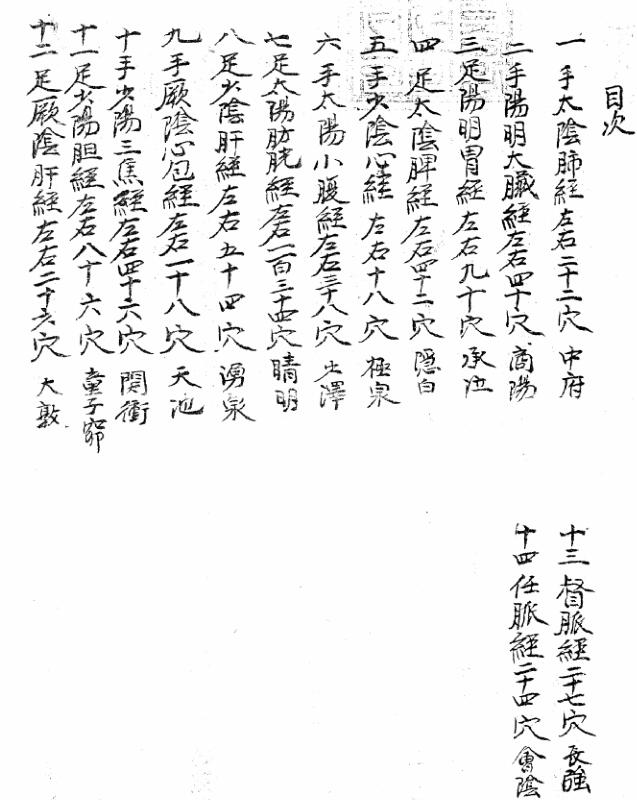 目次
一 手太陰肺經左右二十二穴 中府
二 手陽明大臟經左右四十穴 商陽
三 足陽明胃經左右九十穴 承泣
四 足太陰脾經左右四十二穴 隠白
五 手少陰心經左右十八穴 極泉
六 手太陽小腹經左右三十八穴 少澤
七 足太陽肪胱經左右一百三十四穴 睛明
八 足少陰肝經左右五十四穴 湧泉
九 手厥陰心包經左右一十八穴 天池
十 手少陽三焦經左右四十六穴 関衝
十一 足少陽胆經左右八十六穴 童子窌
十二 足厥陰肝經左右二十六穴 大敦
十三 督脈經二十七穴 長強
十四 任脈經二十四穴 會陰